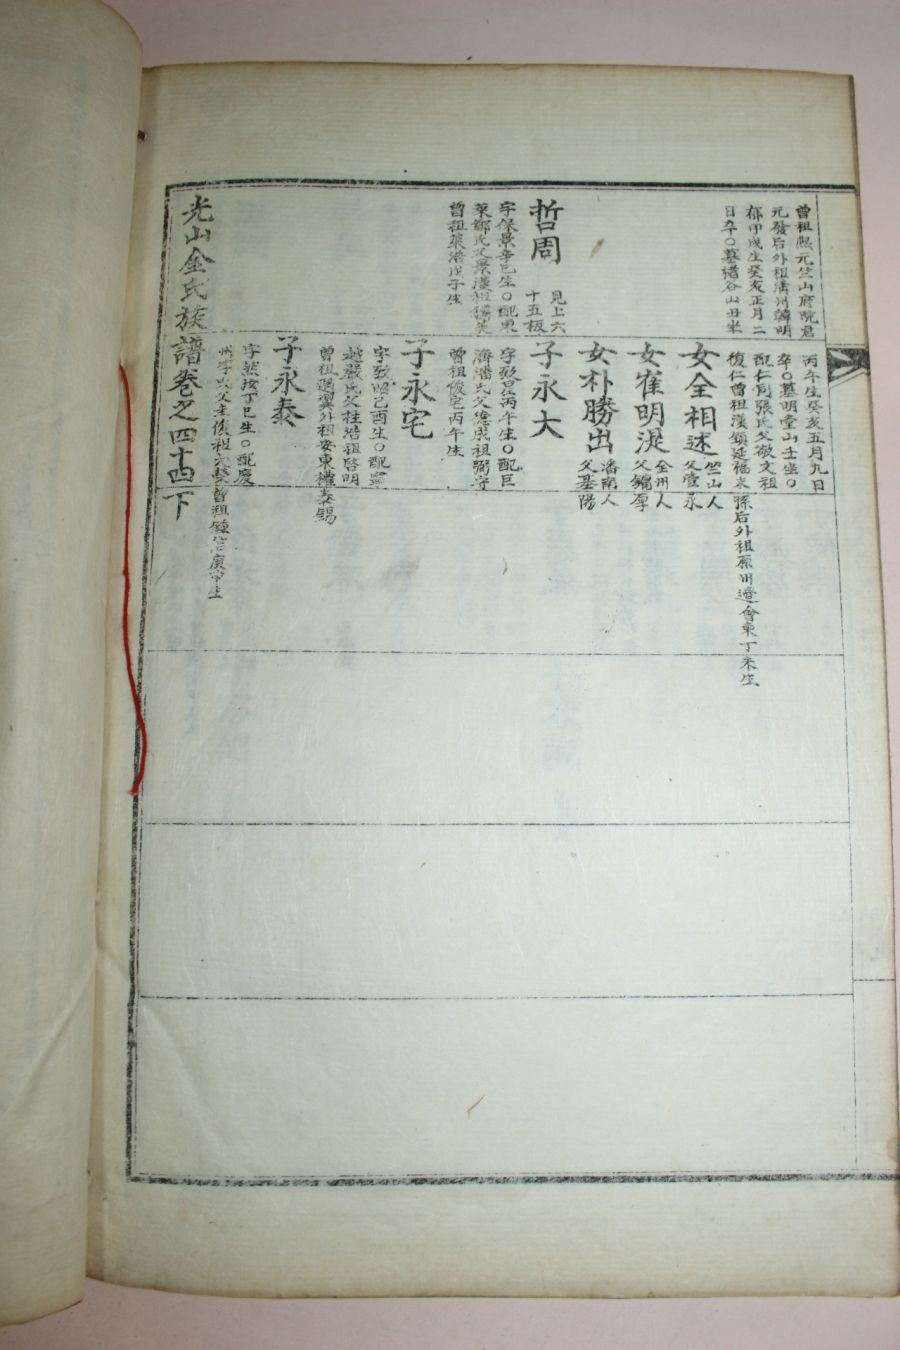 曾祖熙元竺山府院君
元發后外祖清州韓明
郁甲戌生癸亥正月二
日卒〇墓楮谷山丑坐
哲周
見上六
十五板
字保景辛巳生〇配東
萊鄭氏父景漢祖
曾祖
戊子生
丙午生癸亥五月九日
卒〇墓明堂山壬坐〇
配仁同張氏父敬文祖
復仁曾祖漢顕延福末
孫后外祖原州邊會東丁未生
女全相述
竺山人
父壹永
女崔明淏
全州人
父鏞厚
女朴勝出
潘南人
父基陽
子永大
丙午生〇配巨
濟潘氏父億成祖
曾祖俊宅丙午生
子永宅
字致昭乙酉生〇配寧
越嚴氏父柱浩祖啓明
曾祖遇翼外祖安東權泰錫
子永泰
丁巳生〇配慶
州李氏父圭復祖
曾祖鍾信庚申生
光山金氏族譜卷之四十四下